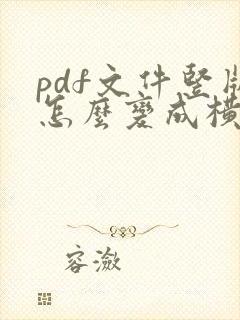 pdf文件竖版
怎麼變成橫
容激